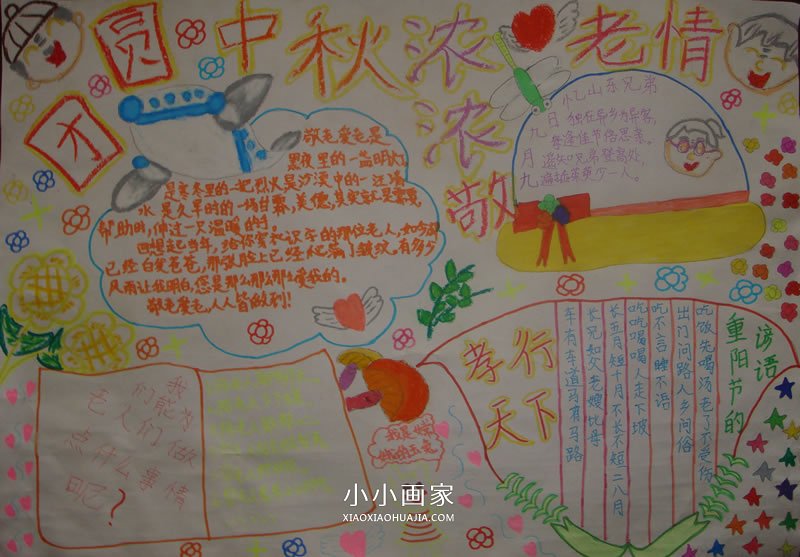 月圆中秋浓浓敬老情
敬老爱老是
黑夜里的一盏明灯,
是寒冬里的一把烈火是沙漠中的一汪清
水,是久旱时的一场甘霖,美德,其实就是需要
帮助时,伸过一只温暖的手。
回想起当年,给你穿衣识字的那位老人,如今
已经白发苍苍,那张脸上已经爬满了皱纹,有多少
风雨让我明白,您是那么那么那么爱我的。
敬老爱老,人人皆做到!
忆山东兄弟
九月九
日独在异乡为异客,
每逢佳节倍思亲。
遥知兄弟登高处,
遍插茱萸少一人。
孝行
天下
重阳节的
谚语
吃饭先喝汤老了不受伤
出门问路入乡问俗
吃不言睡不语
吃吃喝喝人走下坡
长五月短十月不长不短二八月
长兄如父老嫂比母
车有车道马有马路
我能为
们
老人们做
点什么事情
呢?
小小画家
XIAOXIAOHUAJIA.COM